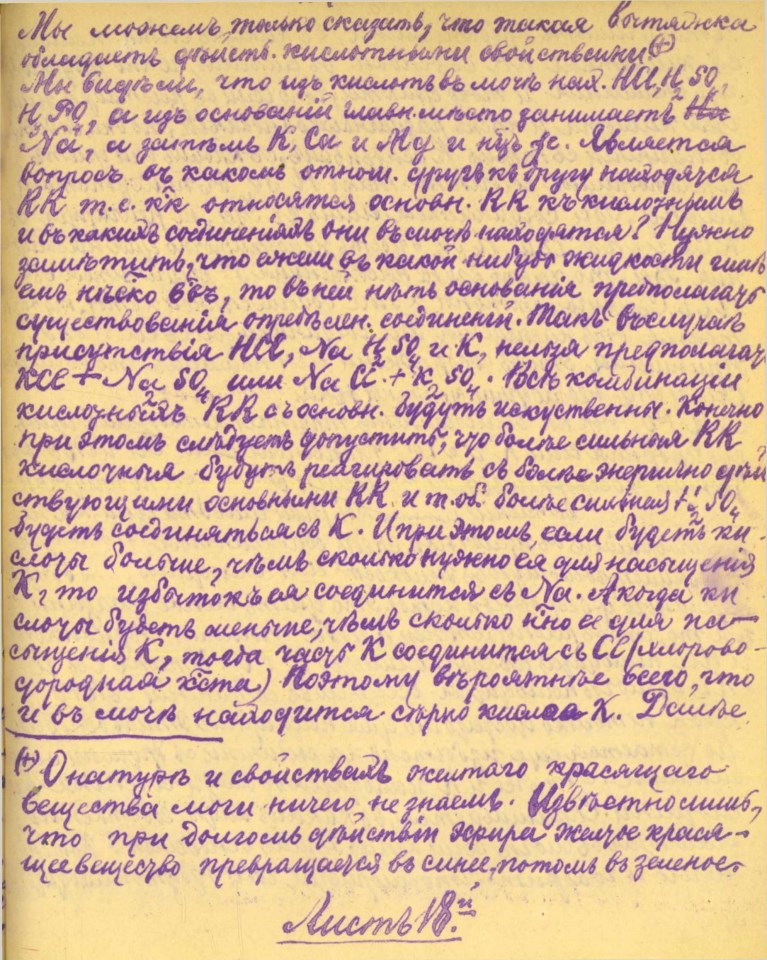 Мы можемъ только сказать, что такая вытяжка
обладаетъ дѣйств. кислотными свойствами. (+)
Мы видѣли, что изъ кислотъ въ мочѣ нах. HCl, H2SO4
H3PO4, а изъ основаній главн. мѣсто занимаетъ
Na, а затѣмъ K, Ca и Mg и Является
вопросъ въ какомъ отнош. другъ къ другу находятся
RR т. е. к͠к относятся основн. RR къ кислотнымъ
и въ какихъ соединеніяхъ они въ мочѣ находятся? Нужно
замѣтить, что ежели въ какой нибудь жидкости
нѣск͠о то въ ней нѣтъ основанія предполагать
существованія опредѣлен. соединеній. Такъ въ случаѣ
присутствія HCl, Na H2SO4 и K, нельзя предполагать
KCl + Na2SO4 или NaCl + K2SO4. Всѣ комбинаціи
кислотныхъ RR съ основн. будутъ искуственны. Конечно
при этомъ слѣдуетъ допустить, что болѣе сильныя RR
кислотныя будутъ реагировать съ болѣе энергично дѣй
ствующими основными RR. и т. об. болѣе сильная H2SO4
будетъ соединяться съ K. И при этомъ, если будетъ ки-
слоты больше, чѣмъ сколько нужно ея для насыщенія
K, то избытокъ ея соединится съ Na. А когда ки
слоты будетъ меньше, чѣмъ сколько н͠но ее для на-
сыщенія K, тогда часть K соединится съ Cl (хлорово-
дородная к͠ста) Поэтому вѣроятнѣе всего, что
и въ мочѣ находится сѣрно кислая K. Далѣе
(+) О натурѣ и свойствахъ желтаго красящаго
вещества мочи ничего не знаемъ. Извѣстно лишь,
что при долгомъ дѣйствіи эфира желтое крася-
щее вещество превращается въ синее, потомъ въ зеленое.
Листъ 18.й